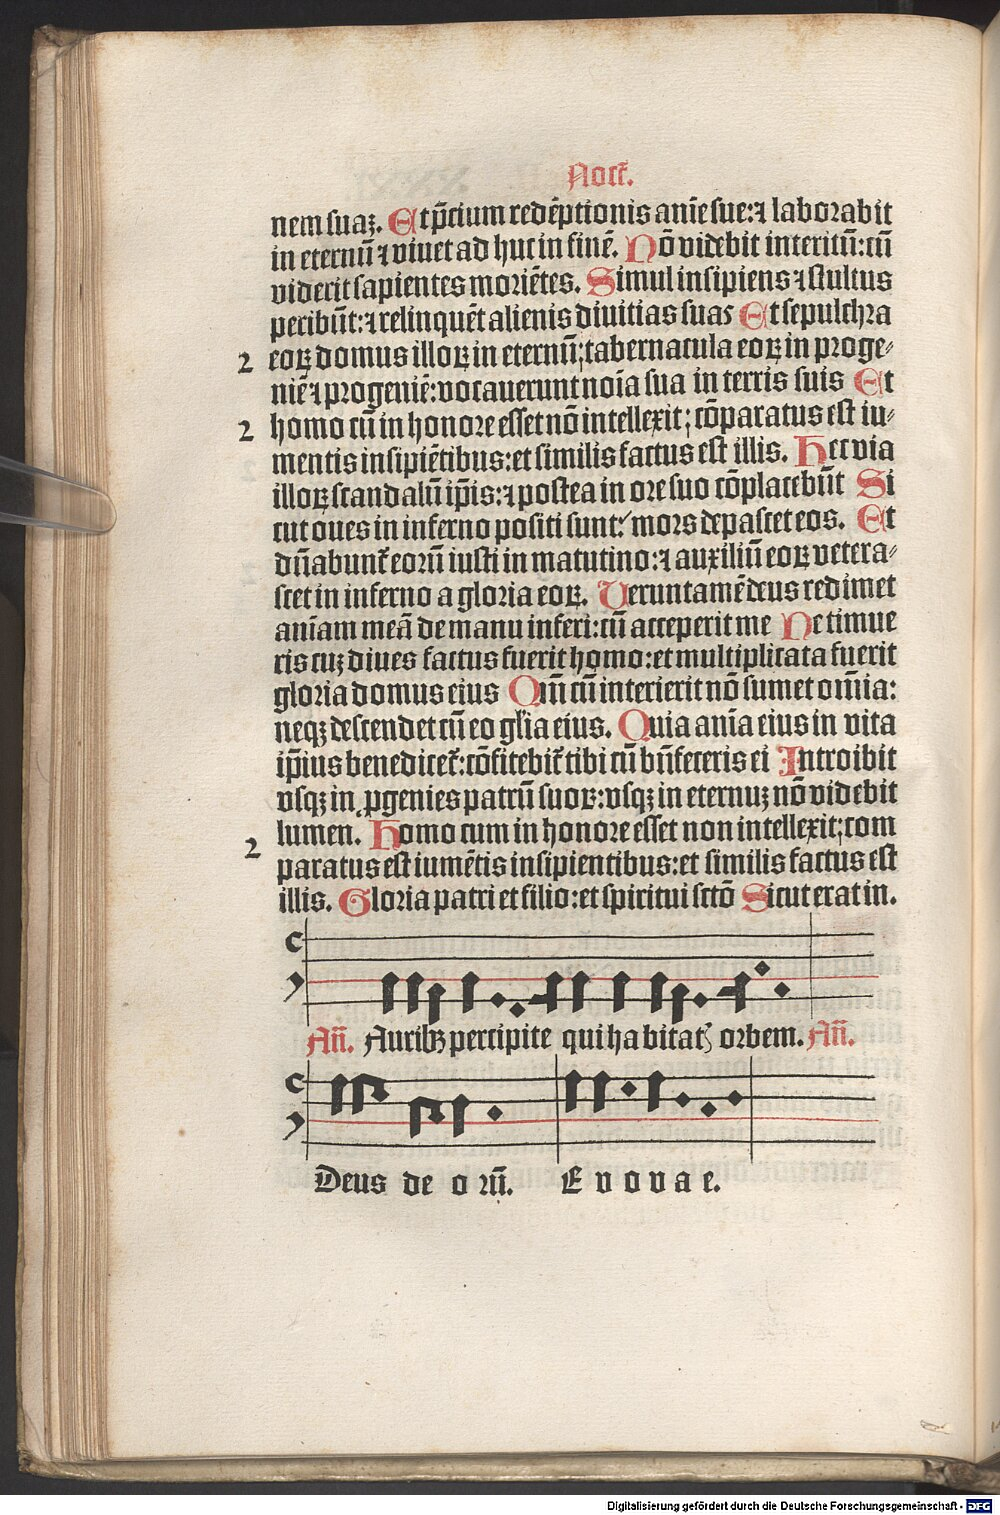 Noct̄.
nem suaꝫ. Et p̄cium redēptionis anīe sue: ⁊ laborabit
in eternū ⁊ viuet ad huc in finē. Nō videbit interitū: cū
viderit sapientes moriētes. Simul insipiens ⁊ stultus
peribūt: ⁊ relinquēt alienis diuitias suas Et sepulchra
2 eoꝝ domus illoꝝ in eternū; tabernacula eoꝝ in proge⸗
niē ⁊ progeniē: vocauerunt noīa sua in terris suis Et
2 homo cū in honore esset nō intellexit; cōparatus est iu⸗
mentis insipiētibus: et similis factus est illis. Hec via
illoꝝ scandalū ip̄is: ⁊ postea in ore suo cōplacebūt Si
cut oues in inferno positi sunt: mors depascet eos. Et
dn̄abunt̄ eorū iusti in matutino: ⁊ auxiliū eoꝝ vetera⸗
scet in inferno a gloria eoꝝ. Veruntamē deus redimet
aniam meā de manu inferi: cū acceperit me Ne timue
ris cuꝫ diues factus fuerit homo: et multiplicata fuerit
gloria domus eius Qm̄ cū interierit nō sumet om̄ia:
neqꝫ descendet cū eo glīa eius. Quia anīa eius in vita
ip̄ius benedicet̄: cōfitebit̄ tibi cū bn̄feceris ei Introibit
vsqꝫ in ꝓgenies patrū suoꝝ: vsqꝫ in eternuꝫ nō videbit
lumen. Homo cum in honore esset non intellexit; com
2 paratus est iumētis insipientibus: et similis factus est
illis. Gloria patri et filio: et spiritui sctō Sicut erat in.
An̄. Auribꝫ percipite qui habitatꝭ orbem. An̄.
Deus de orū. E v o v a e.
Digitalisierung gefördert durch die Deutsche Forschungsgemeinschaft - DFG